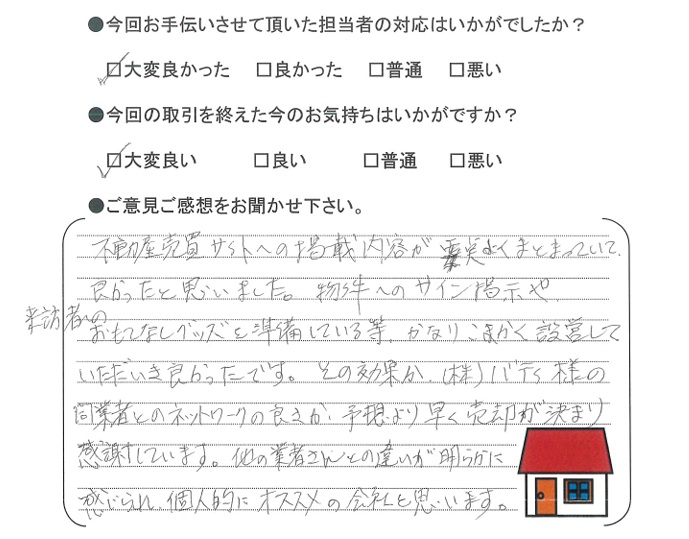 ●今回お手伝いさせて頂いた担当者の対応はいかがでしたか？
☑大変良かった □良かった □普通 □悪い
●今回の取引を終えた今のお気持ちはいかがですか？
☑大変良い □良い □普通 □悪い
●ご意見ご感想をお聞かせ下さい。
不動産売買サイトへの掲載内容が よくまとまっていて、
良かったと思いました。物件へのサイン掲示や、
来訪者への
おもてなしグッズを準備している等、かなりこまかく設営して
いただいき良かったです。その効果か、(株)バディ様の
同業者とのネットワークの良さか、予想より早く売却が決まり
感謝しています。他の業者さんとの違いが明らかに
感じられ、個人的にオススメの会社と思います。